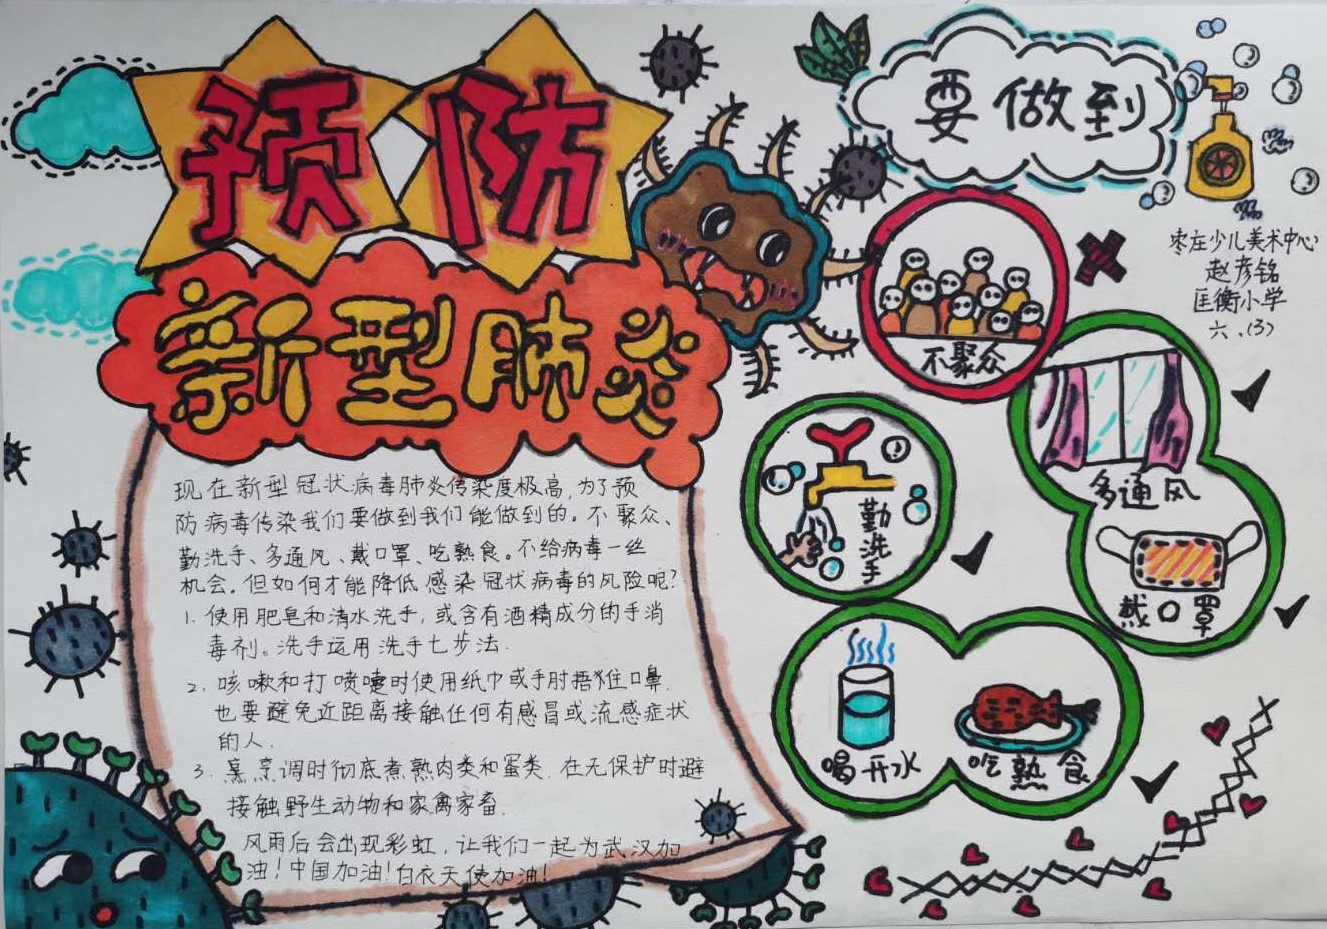 预防
新型肺炎
现在新型冠状病毒肺炎传染度极高，为了预
防病毒传染我们要做到我们能做到的。不聚众、
勤洗手、多通风、戴口罩、吃熟食。不给病毒一丝
机会。但如何才能降低感染冠状病毒的风险呢？
1. 使用肥皂和清水洗手，或含有酒精成分的手消
毒剂。洗手运用洗手七步法.
2. 咳嗽和打喷嚏时使用纸巾或手肘捂住口鼻.
也要避免近距离接触任何有感冒或流感症状
的人.
3. 烹调时彻底煮熟肉类和蛋类.在无保护时避
接触野生动物和家禽家畜.
风雨后会出现彩虹，让我们一起为武汉加
油！中国加油！白衣天使加油！
要做到
枣庄少儿美术中心
赵彦铭
匡衡小学
六、(3)
不聚众
多通风
勤洗手
戴口罩
喝开水
吃熟食